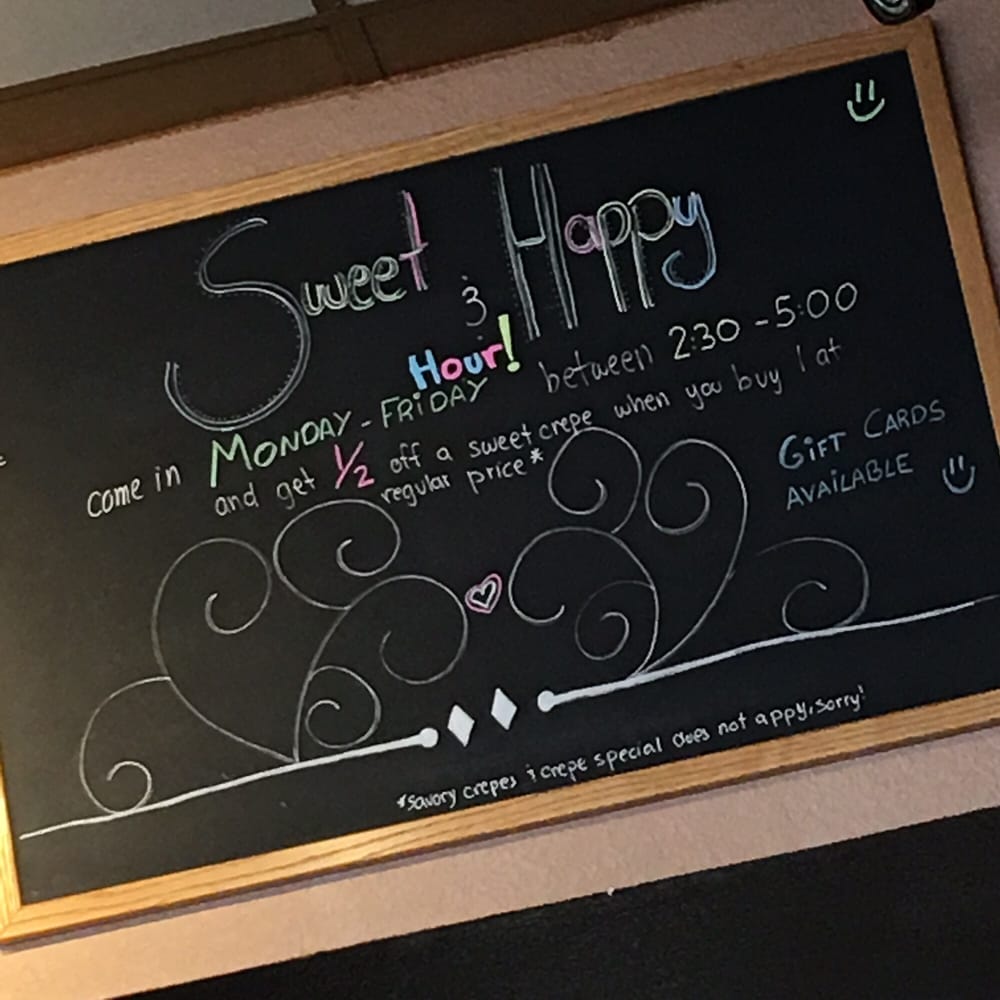 Sweet & Happy
Hour!
come in MONDAY - FRIDAY between 2:30 - 5:00
and get 1/2 off a sweet crepe when you buy 1 at
regular price*
GIFT CARDS
AVAILABLE
*savory crepes & crepe special does not appy, sorry!